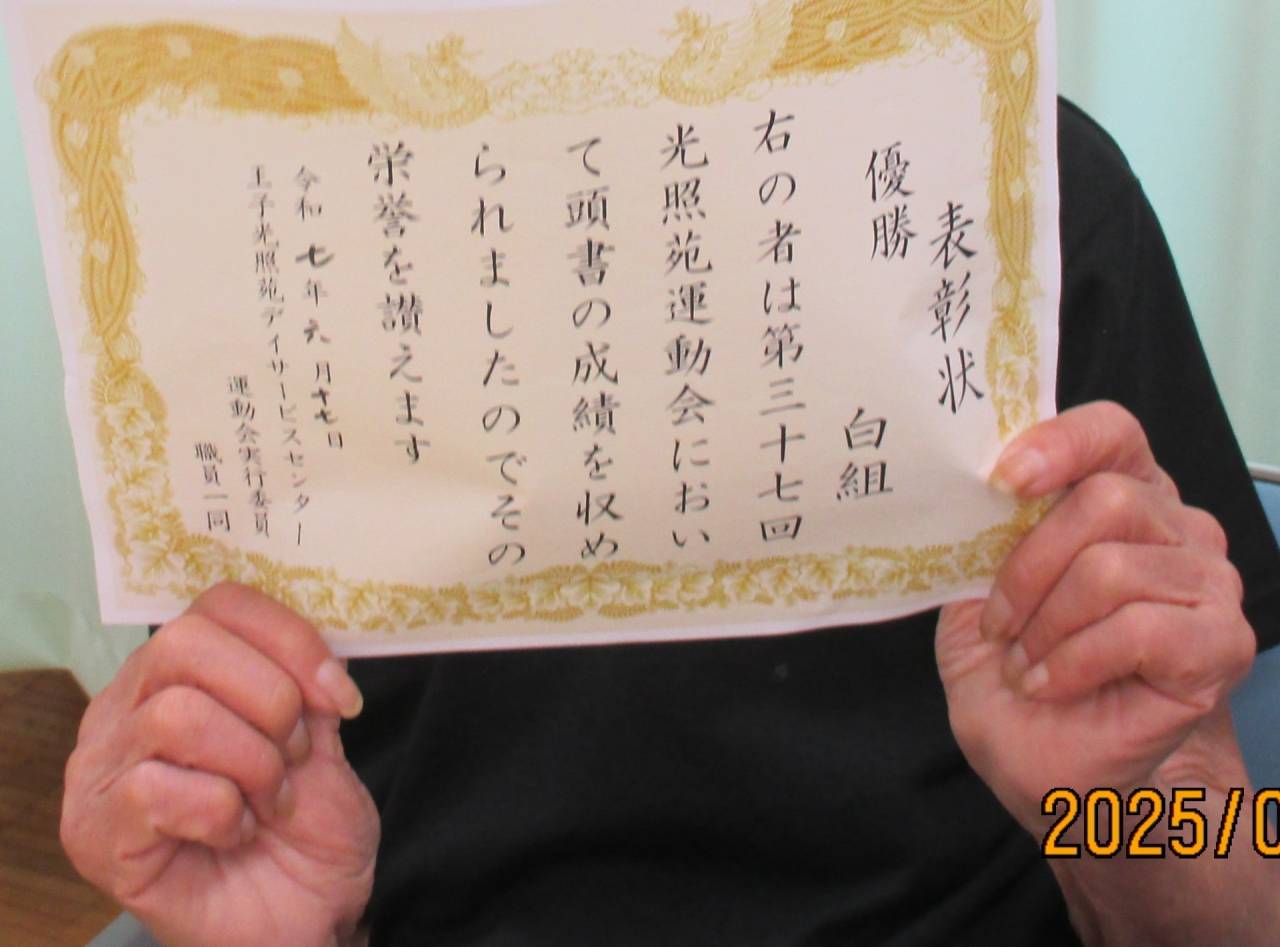 表彰状
優勝 白組
右の者は第三十七回
光照苑運動会におい
て頭書の成績を収め
られましたのでその
栄誉を讃えます
令和七年六月十七日
王子光照苑デイサービスセンター
運動会実行委員
職員一同
2025/0